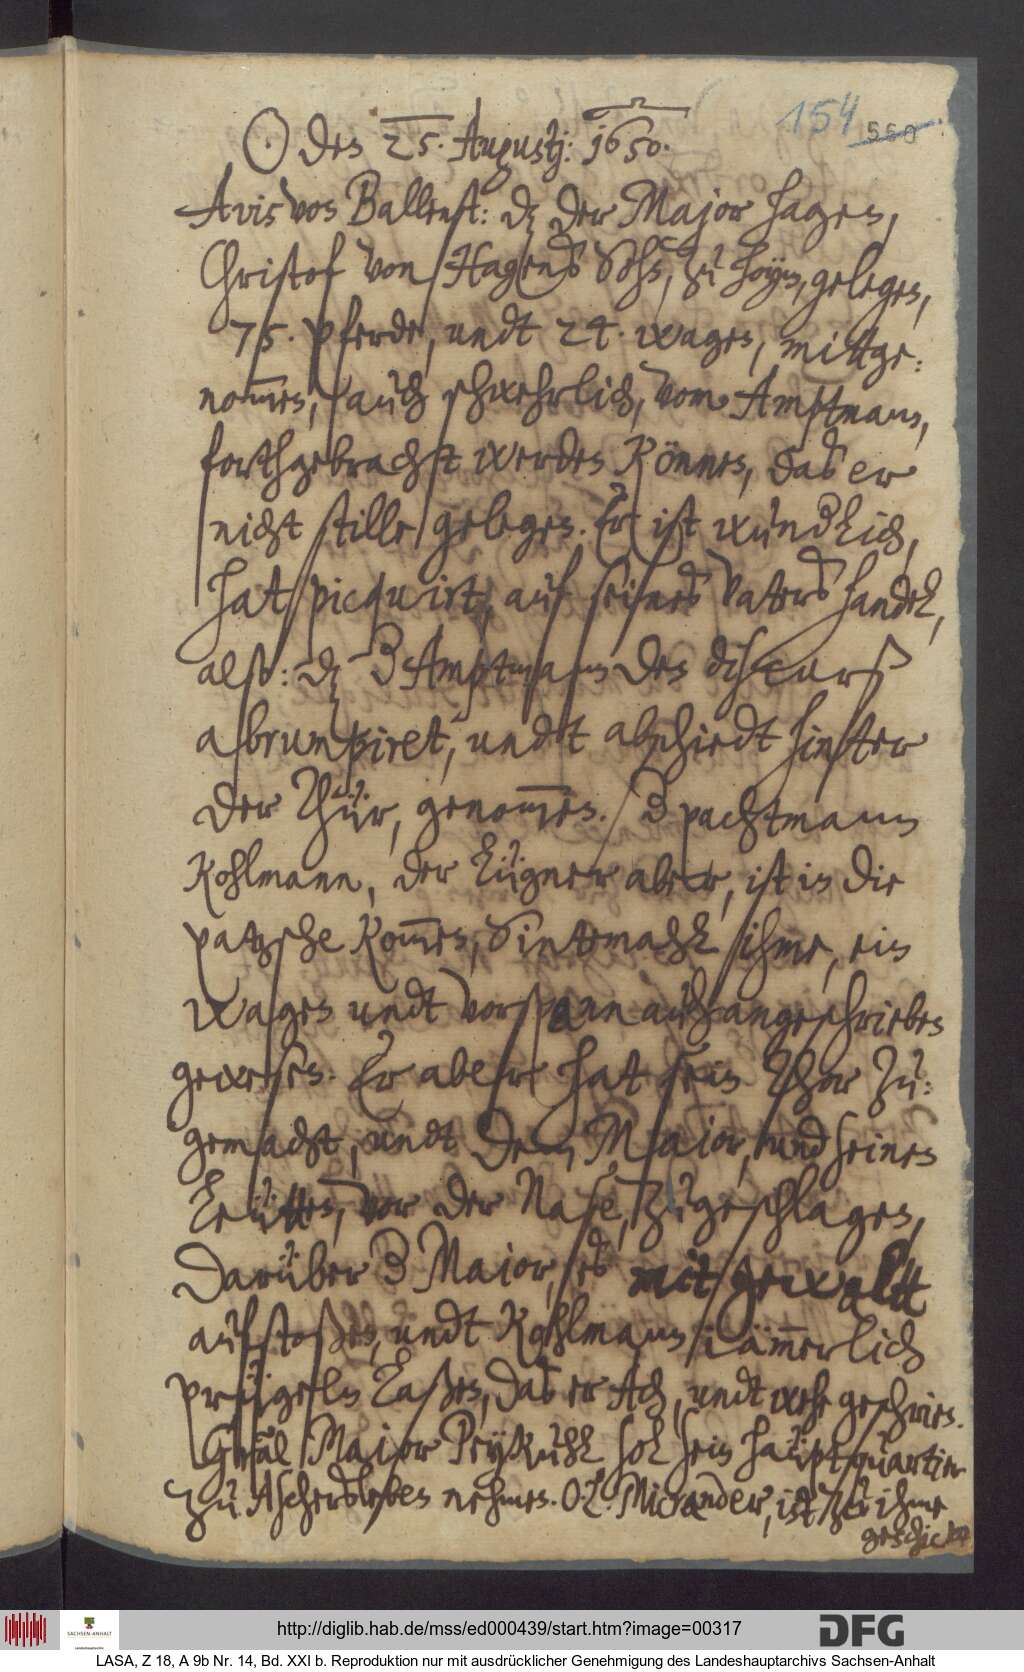 154 550
☉ den 25. Augustj: 1650.
Avis von Ballenst: dz der Major Hagen,
Christof von Hagens Sohn, zu Hoym, gelegen,
75. pferde, undt 24. wagen, mittge:
nom̅en, auch schwehrlich, vom Amptmann,
forthgebracht werden können, daß er
nicht stille gelegen. Er ist wundlich,
hat picquirt, auf seines Vaters handel,
also: dz ꝫ Amptmann den discurß
abrumpiret, undt abschiedt hinter
der Thür, genom̅en. ꝫ pachtmann
Kohlmann, der Lügner aber, ist in die
patzsche kom̅en, Sintemahl ihme, ein
wagen undt Vorspann auch angeschrieben
gewesen. Er aber hat sein Thor zu:
gemacht, undt dem Major, und seinen
Leütten, vor der Nase, zugeschlagen,
Darüber ꝫ Major, es mit gewaltt
aufstoßen, undt Kohlmann iäm̅erlich
prügeln laßen, daß er Ach, undt wehe geschrien.
General Major Prykuhl sol sein hauptquartier
zu Ascherßleben nehmen. O. L. Micrander, ist zu ihme
geschickt
http://diglib.hab.de/mss/ed000439/start.htm?image=00317
SACHSEN-ANHALT
DFG
LASA, Z 18, A 9b Nr. 14, Bd. XXI b. Reproduktion nur mit ausdrücklicher Genehmigung des Landeshauptarchivs Sachsen-Anhalt